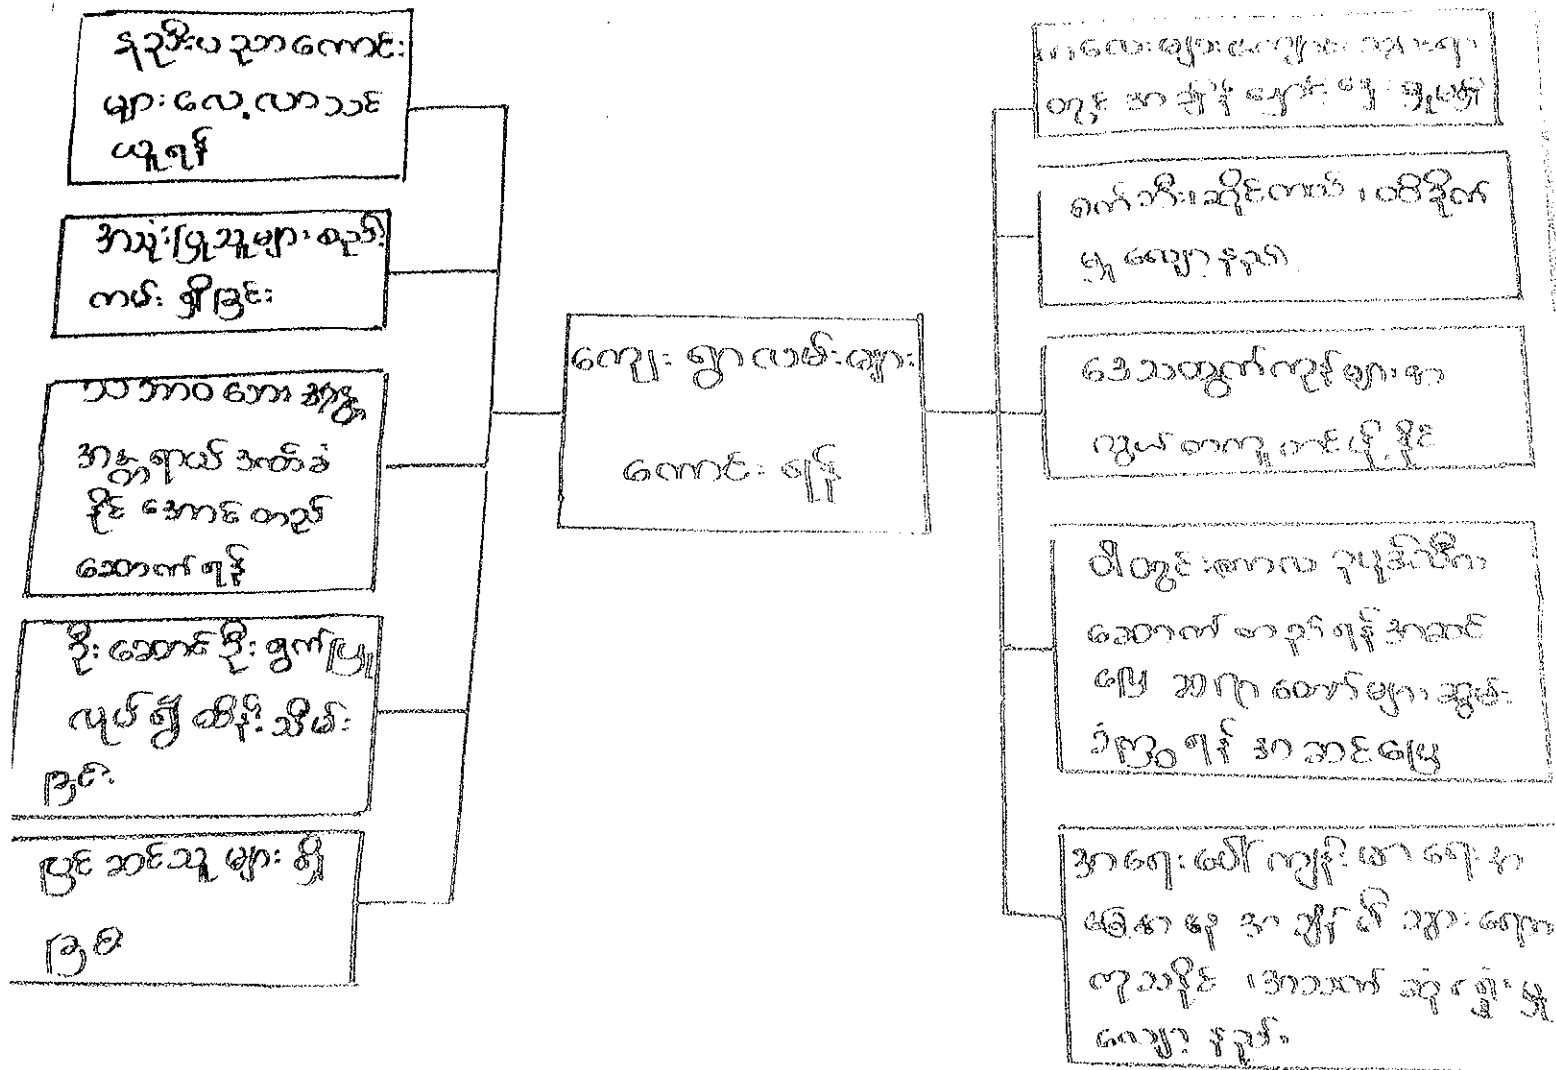 နည်းပညာကောင်း
များ လေ့လာသင်
ယူရန်
အသုံးပြုသူများ စည်း
ကမ်း ရှိခြင်း
သဘာဝဘေး အန္တ
အန္တရာယ် ဒဏ်ခံ
နိုင် အောင် တည်
ဆောက်ရန်
ဦးဆောင်ဦးရွက်ပြု
လုပ်၍ ထိန်းသိမ်း
ခြင်း
ပြင်ဆင်သူများ ရှိ
ကျေးရွာလမ်းများ
ကောင်းရန်
ကလေးများ ကျောင်းသွားရာ
တွင် အချိန်
စက်ဘီး၊ ဆိုင်ကယ်၊ ထိခိုက်
မှု လျော့နည်း
ဒေသထွက်ကုန်များ အ
လွယ်တကူ တင်ပို့နိုင်
ဝါတွင်းကာလ
ဆောက်တည်ရန် အဆင်
ပြေ ဆရာတော်များ ဆွမ်း
ခံကြွရန် အဆင်ပြေ
အရေးပေါ် ကျန်းမာရေး အ
ခြေအနေ အချိန်မီ သွားရောက်
ကုသနိုင် ၊အသက် ဆုံးရှုံးမှု
လျော့နည်း